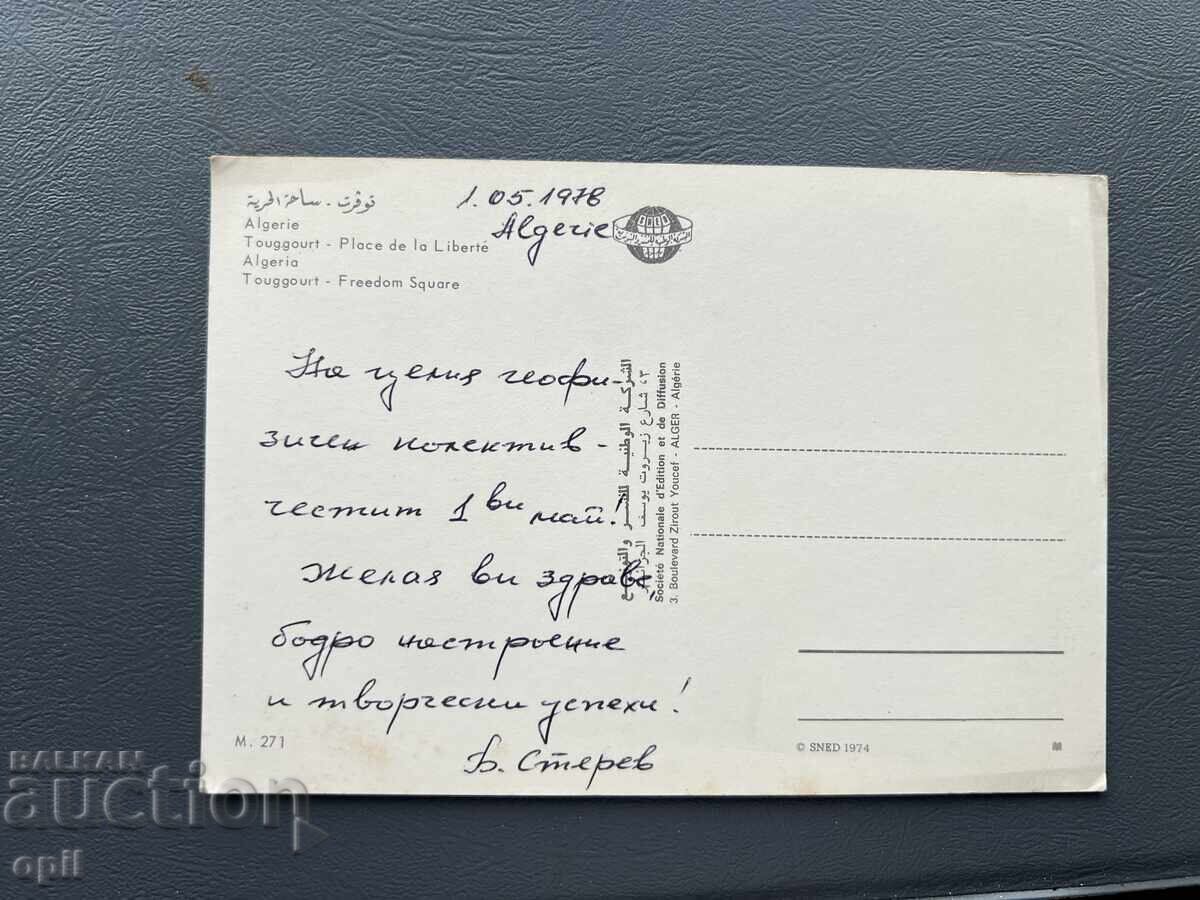 توقرت - ساحة الحرية
Algerie
Touggourt - Place de la Liberté
Algeria
Touggourt - Freedom Square
1.05.1978
Algerie
На целия геофи-
зичен колектив -
честит 1ви май!
Желая ви здраве,
бодро настроение
и творчески успехи!
Б. Стерев
الشركة الوطنية للنشر والتوزيع
٣، شارع زيروت يوسف الجزائر
Société Nationale d'Edition et de Diffusion
3. Boulevard Zirout Youcef - ALGER - Algérie
M. 271
© SNED 1974
BALKAN
auction
opil